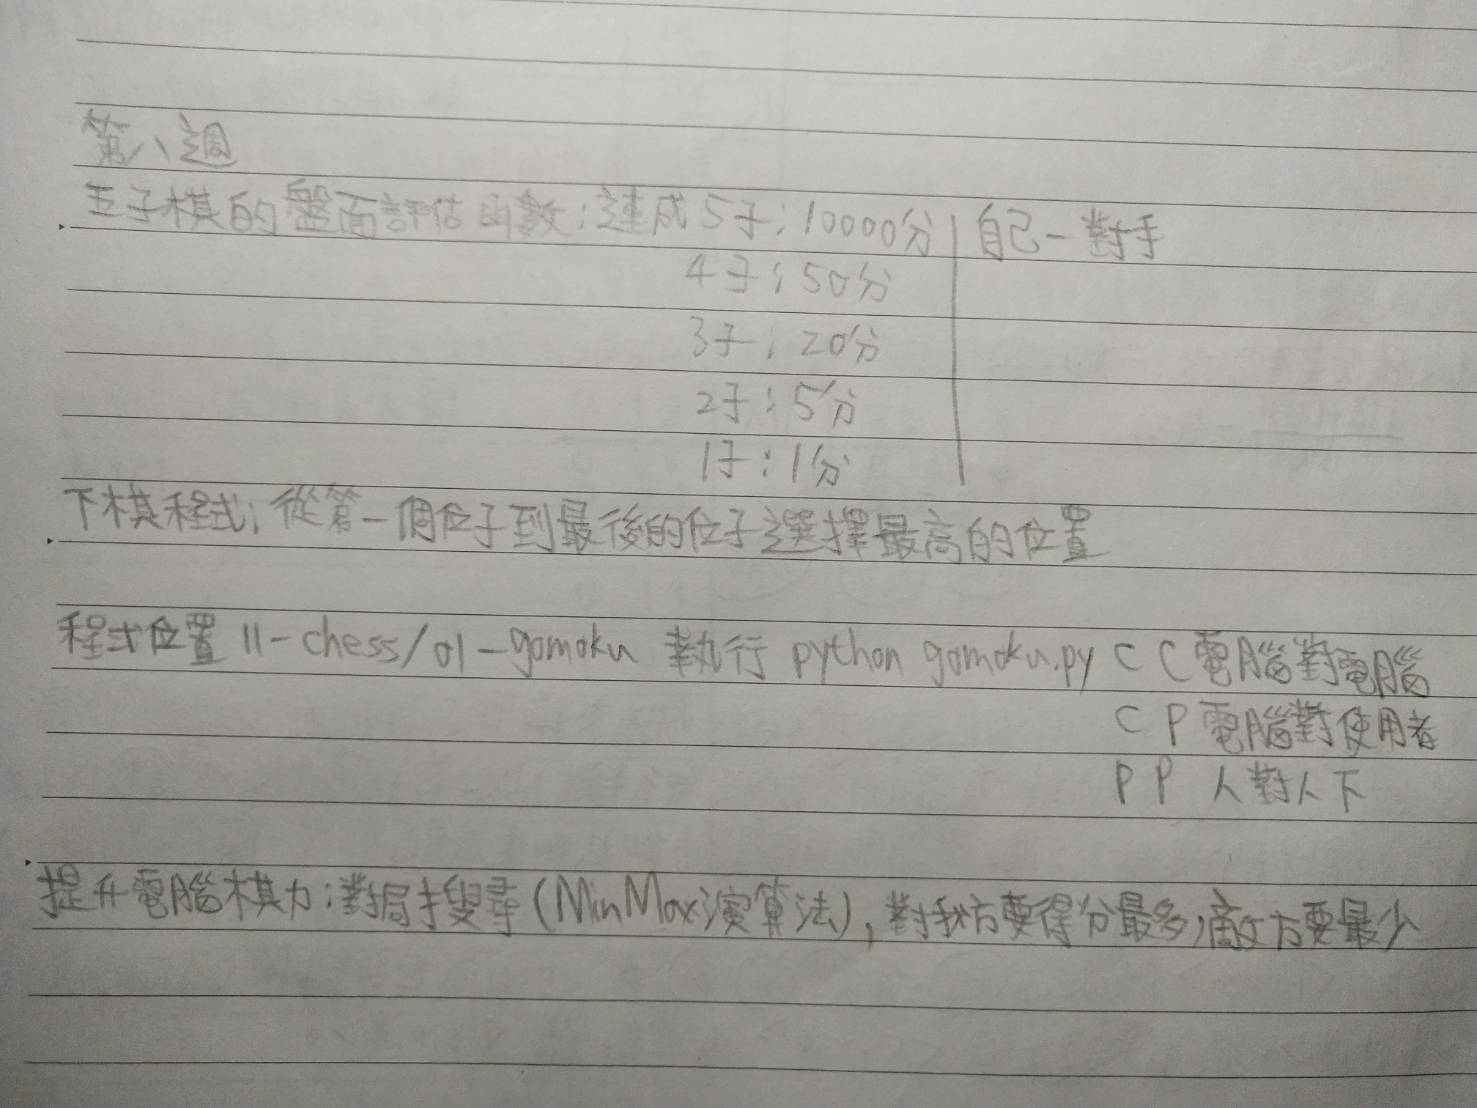 第八週
五子棋的盤面評估函數:連成5子:10000分 自己-對手
4子:50分
3子:20分
2子:5分
1子:1分
下棋程式:從第一個位子到最後的位子選擇最高的位置
程式位置 11-chess/01-gomoku 執行 python gomoku.py C C 電腦對電腦
C P 電腦對使用者
P P 人對人下
提升電腦棋力:對局搜尋(MinMax演算法),對我方要得分最多,敵方要最少